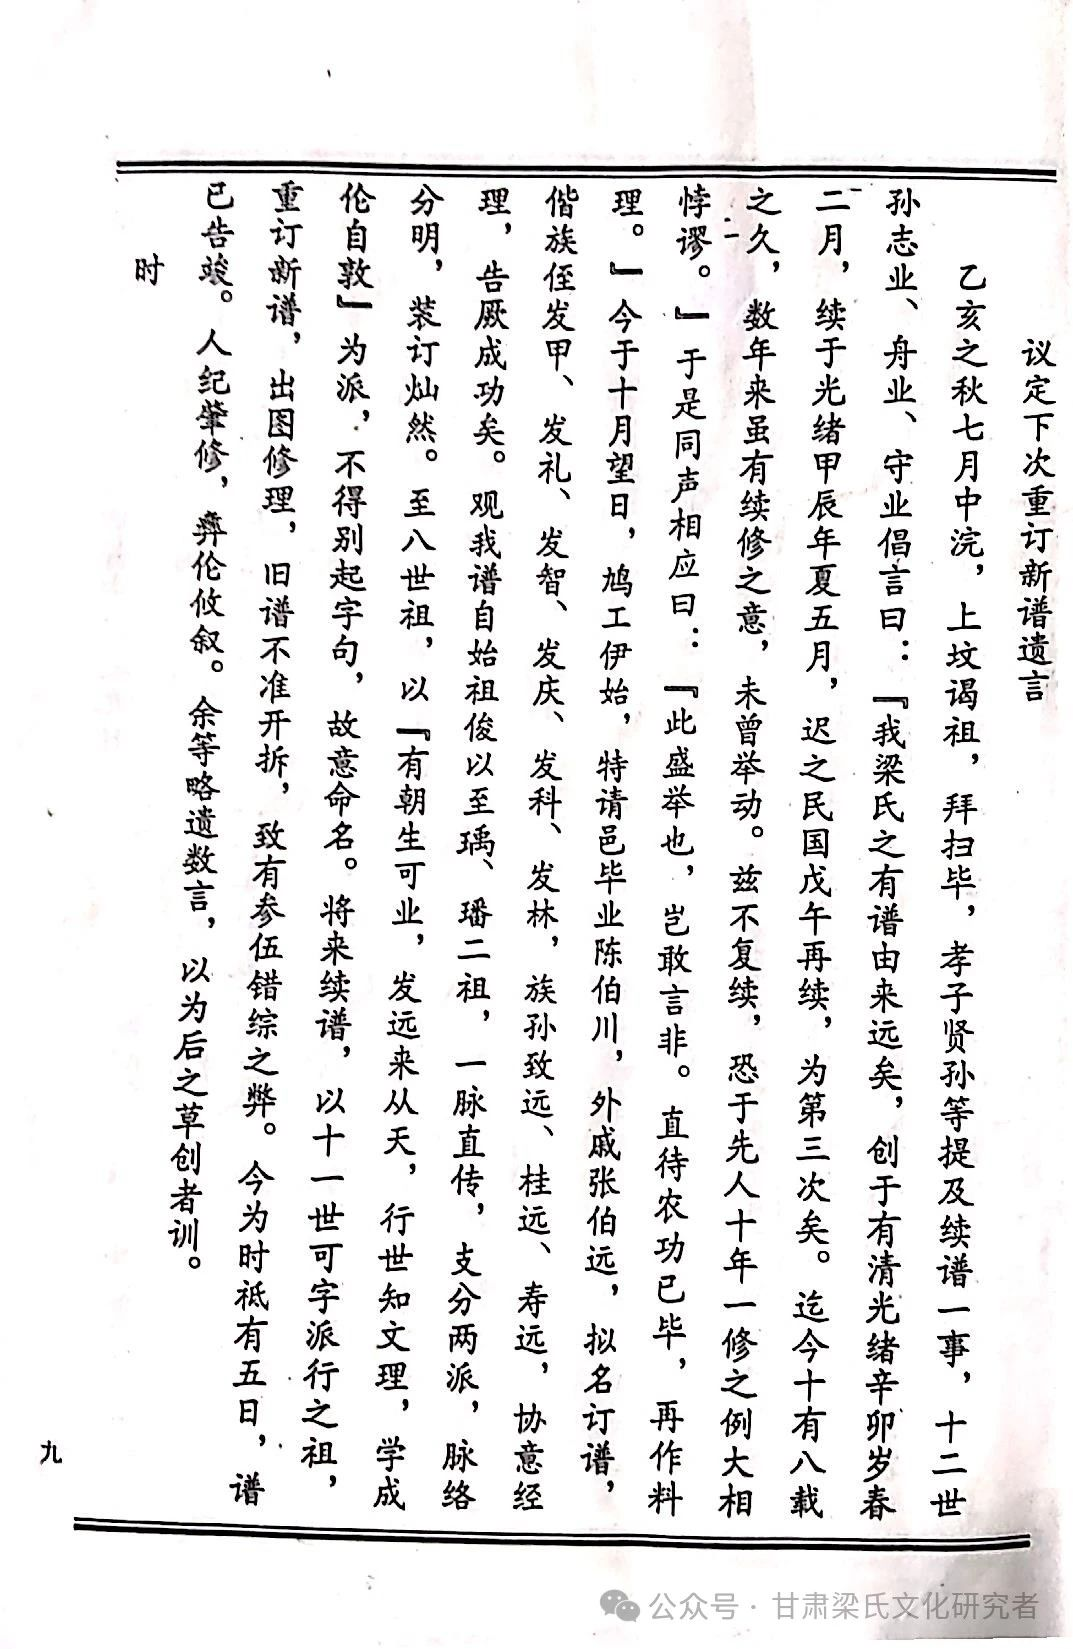 议定下次重订新谱遗言
乙亥之秋七月中浣，上坟谒祖，拜扫毕，孝子贤孙等提及续谱一事，十二世
孙志业、舟业、守业倡言曰：『我梁氏之有谱由来远矣，创于有清光绪辛卯岁春
二月，续于光绪甲辰年夏五月，迟之民国戊午再续，为第三次矣。迄今十有八载
之久，数年来虽有续修之意，未曾举动。兹不复续，恐于先人十年一修之例大相
悖谬。』于是同声相应曰：『此盛举也，岂敢言非。直待农功已毕，再作料
理。』今于十月望日，鸠工伊始，特请邑毕业陈伯川，外戚张伯远，拟名订谱，
偕族侄发甲、发礼、发智、发庆、发科、发林，族孙致远、桂远、寿远，协意经
理，告厥成功矣。观我谱自始祖俊以至瑀、璠二祖，一脉直传，支分两派，脉络
分明，装订灿然。至八世祖，以『有朝生可业，发远来从天，行世知文理，学成
伦自敦』为派，不得别起字句，故意命名。将来续谱，以十一世可字派行之祖，
重订新谱，出图修理，旧谱不准开拆，致有参伍错综之弊。今为时祗有五日，谱
已告竣。人纪肇修，彝伦攸叙。余等略遗数言，以为后之草创者训。
时
九
公众号·甘肃梁氏文化研究者